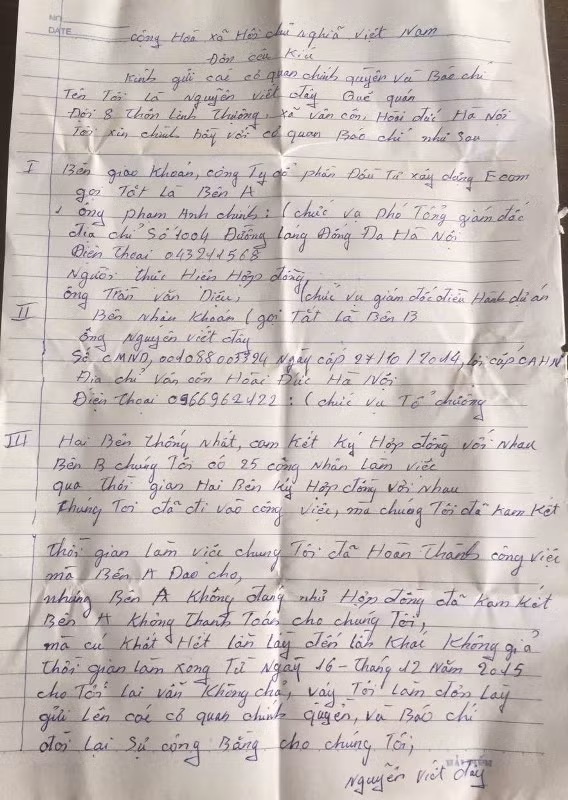 NO
DATE
công Hoà xã Hôi chủ nghĩa việt Nam
Đơn cêu Kiú
Kính gửi các cơ quan chính quyền và Báo chí
Tên Tôi Là Nguyễn viết đây Quê quán
Đội 8 Thôn Linh Thượng, xã vân côn, Hoài đức Hà Nội
Tôi xin chình bầy với cơ quan Báo chí như sau
I Bên giao Khoán, công Ty đổ phần Đầu Tư xây dựng Ecom
gọi Tắt Là Bên A
1 ông phạm Anh chinh: (chức vụ phó Tổng giám đốc
địa chỉ Số 1004 Đường Láng Đống Đa Hà Nội
Điện Thoại 043211568
Người Thực Hiện Hợp đồng
ông Trần văn Diệu, (chức vụ giám đốc điều Hành dự án
II Bên Nhận Khoán (gọi Tắt Là Bên B
ông Nguyễn viết đây
Số CMND, 001088003394 Ngày cấp 27/10/2014, cấp CAHN
Địa chỉ vân côn Hoài Đức Hà Nội
Điện Thoại 0966962422: (chức vụ Tổ chưởng
III Hai Bên Thống Nhất, cam Kết Ký Hợp đồng với Nhau
Bên B chúng Tôi có 25 công Nhân Làm việc
qua Thời gian Hai Bên Ký Hợp đồng với Nhau
chúng Tôi đã đi vào công việc, mà chúng Tôi đã Kam Kết
Thời gian Làm việc chung Tôi đã Hoàn Thành công việc
mà Bên A Đao cho,
nhưng Bên A Không đang như Hợp đồng đã Kam Kết
Bên A Không Thanh Toán cho chung Tôi,
mà cứ Khất Hết Lần Lây đến Lần Khác Không giả
Thời gian Làm xong Từ Ngày 16-Tháng 12 Năm 2015
cho Tới Lai vẫn Không chả, vây Tôi Làm đơn Lay
gửi Lên các cơ quan chinh quyền, và Báo chí
đòi Lại Sự công Bằng cho chúng Tôi,
Nguyễn viết đây